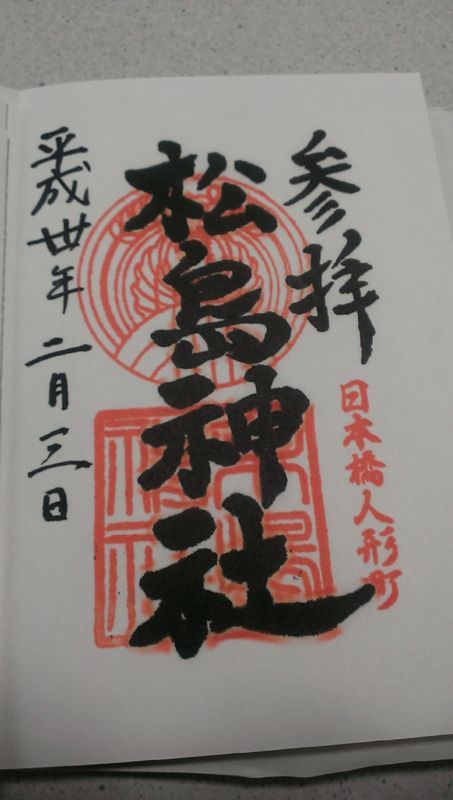 参拝
日本橋人形町
松島神社
平成卅年二月三日